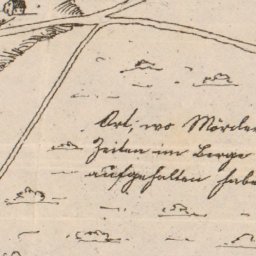 Ort, wo Mörder
Zeiten im Berge
aufgehalten habe